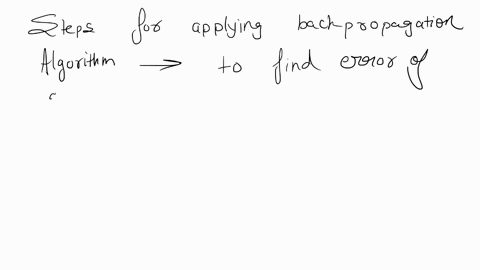 Steps for applying backpropagation
Algorithm → to find error of